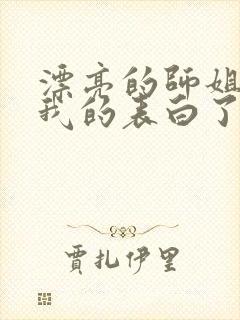 漂亮的師姐
我的表白了
賈扎伊里